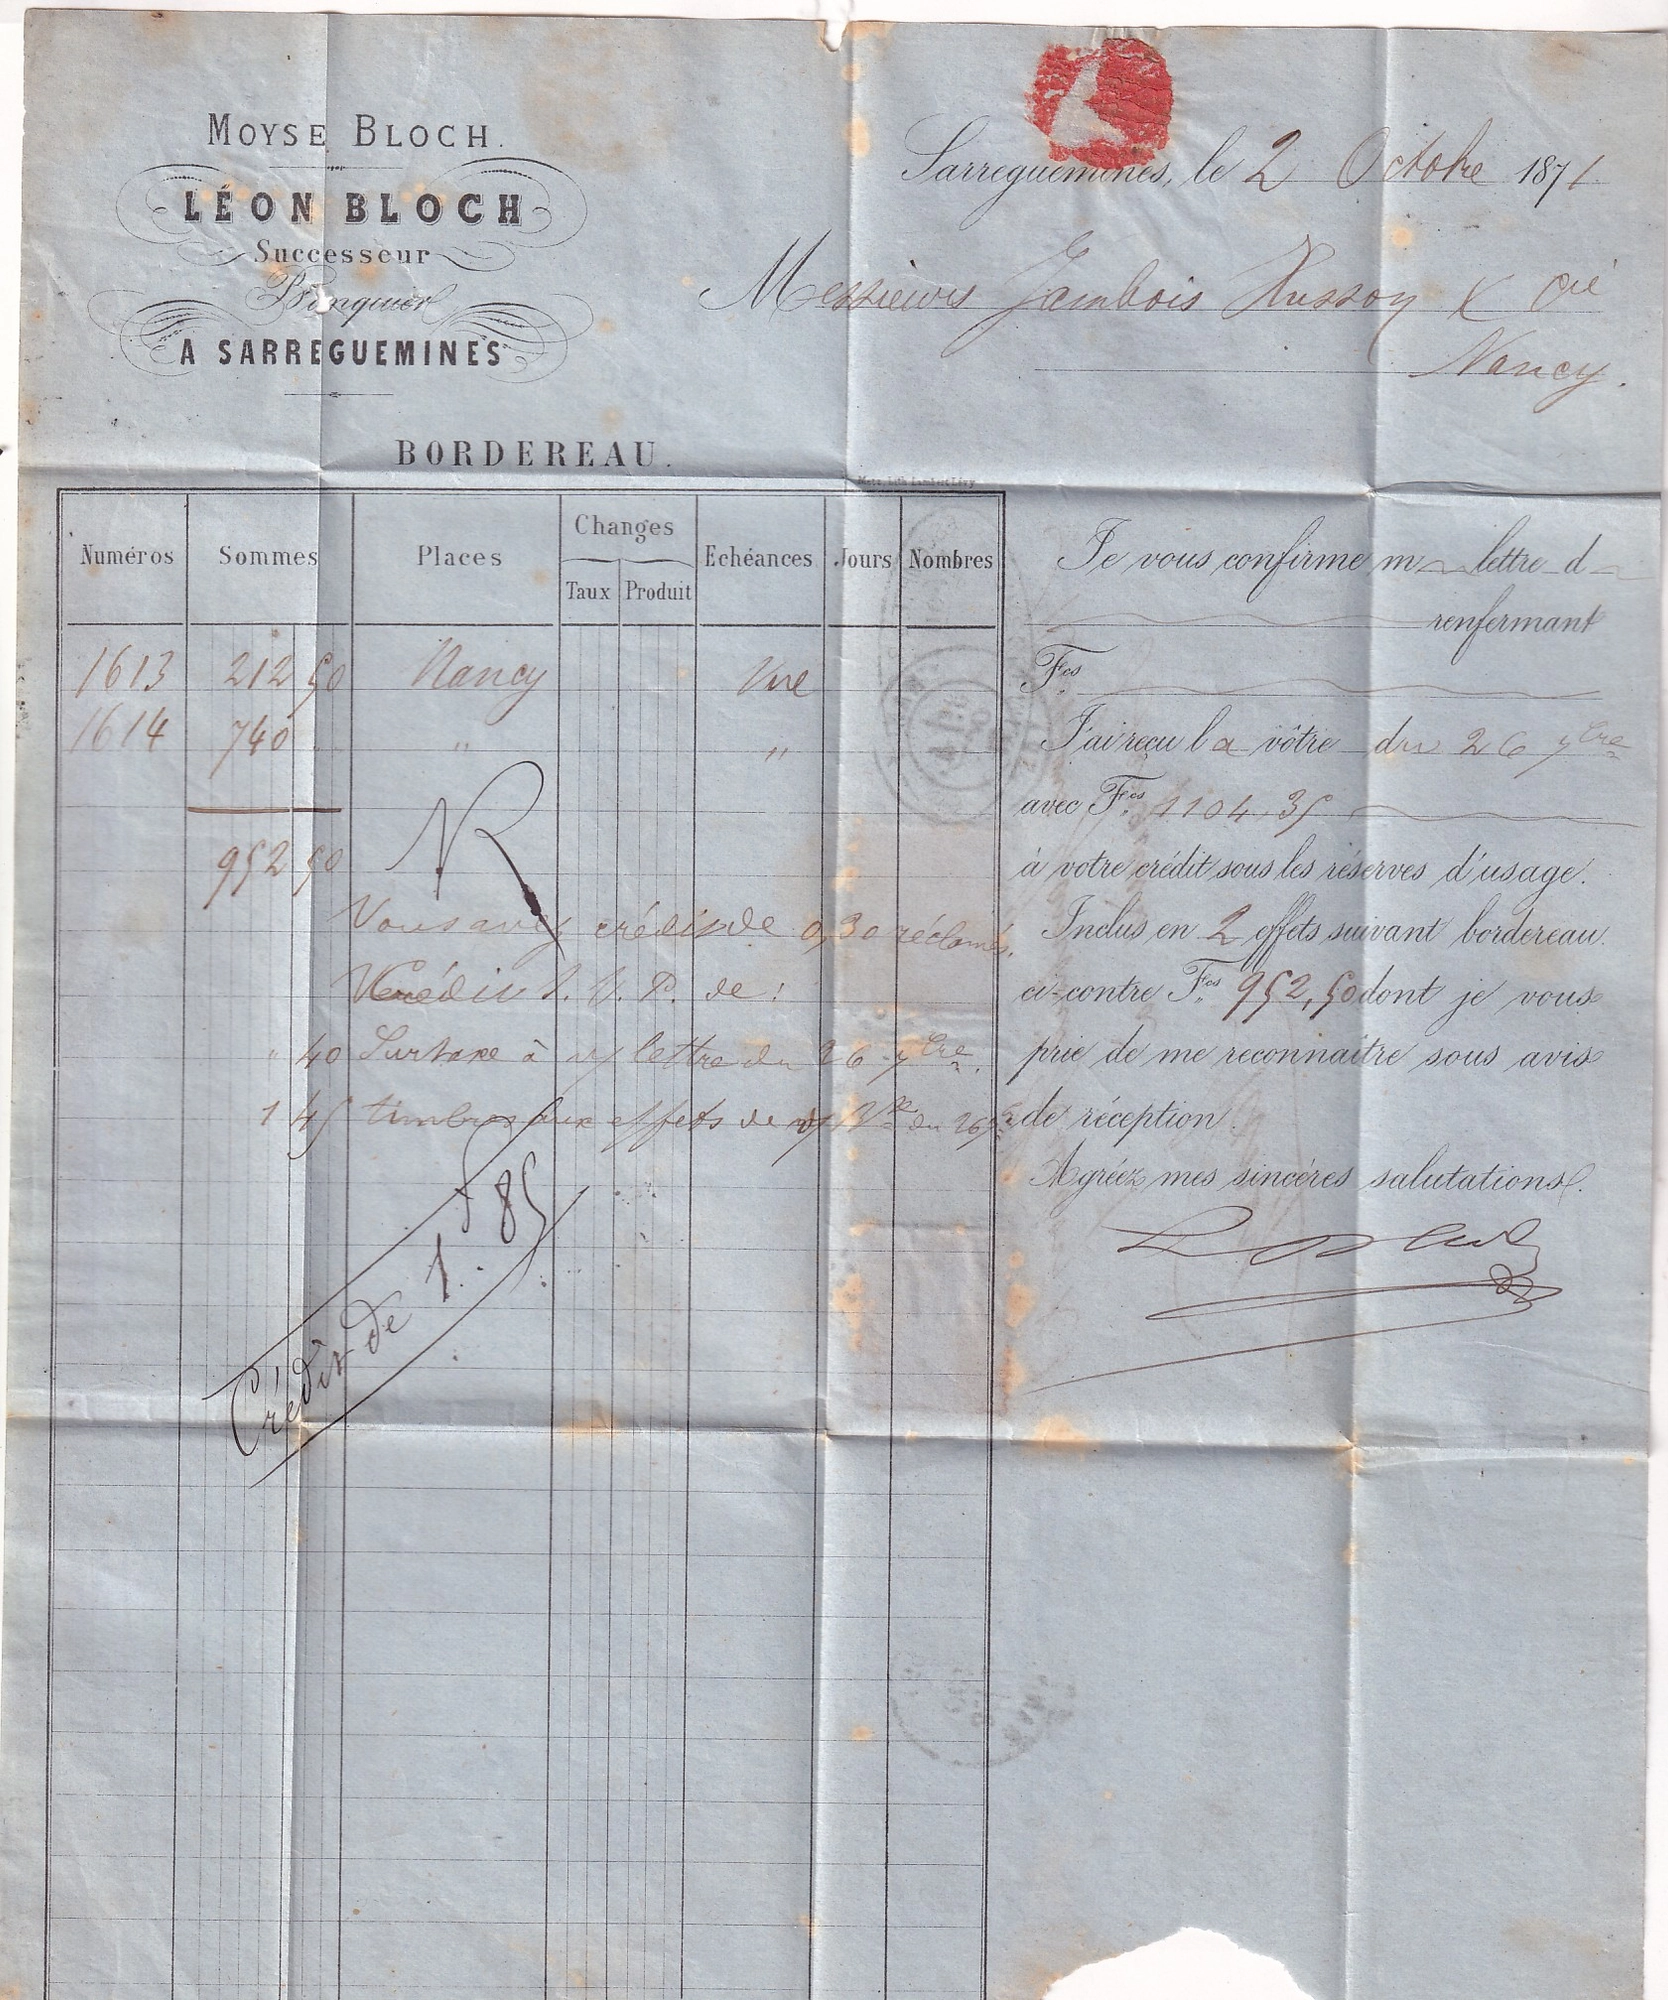 MOYSE BLOCH.
LÉON BLOCH
Successeur
Banquier
A SARREGUEMINES
Sarreguemines, le 2 Octobre 1871
Messieurs Jambois Husson & Cie
Nancy.
BORDEREAU.
Metz, Lith Lambert Lévy
Numéros Sommes Places Changes Echéances Jours Nombres
Taux Produit
1613 212 50 Nancy Vue
1614 740 " "
952 50
Vous avez crédit de 0,30 réclamés.
Crédit S. V. P. de :
" 40 Surtaxe à v/ lettre du 26 7bre.
1 45 timbres aux effets de v/ du 26 7bre
Crédit de 1 f 85
Je vous confirme m lettre d
renfermant
Fcs
J'ai reçu la vôtre du 26 7bre
avec Fcs 1104.35
à votre crédit sous les réserves d'usage.
Inclus en 2 effets suivant bordereau
ci-contre Fcs 952,50 dont je vous
prie de me reconnaître sous avis
de réception.
Agréez mes sincères salutations.